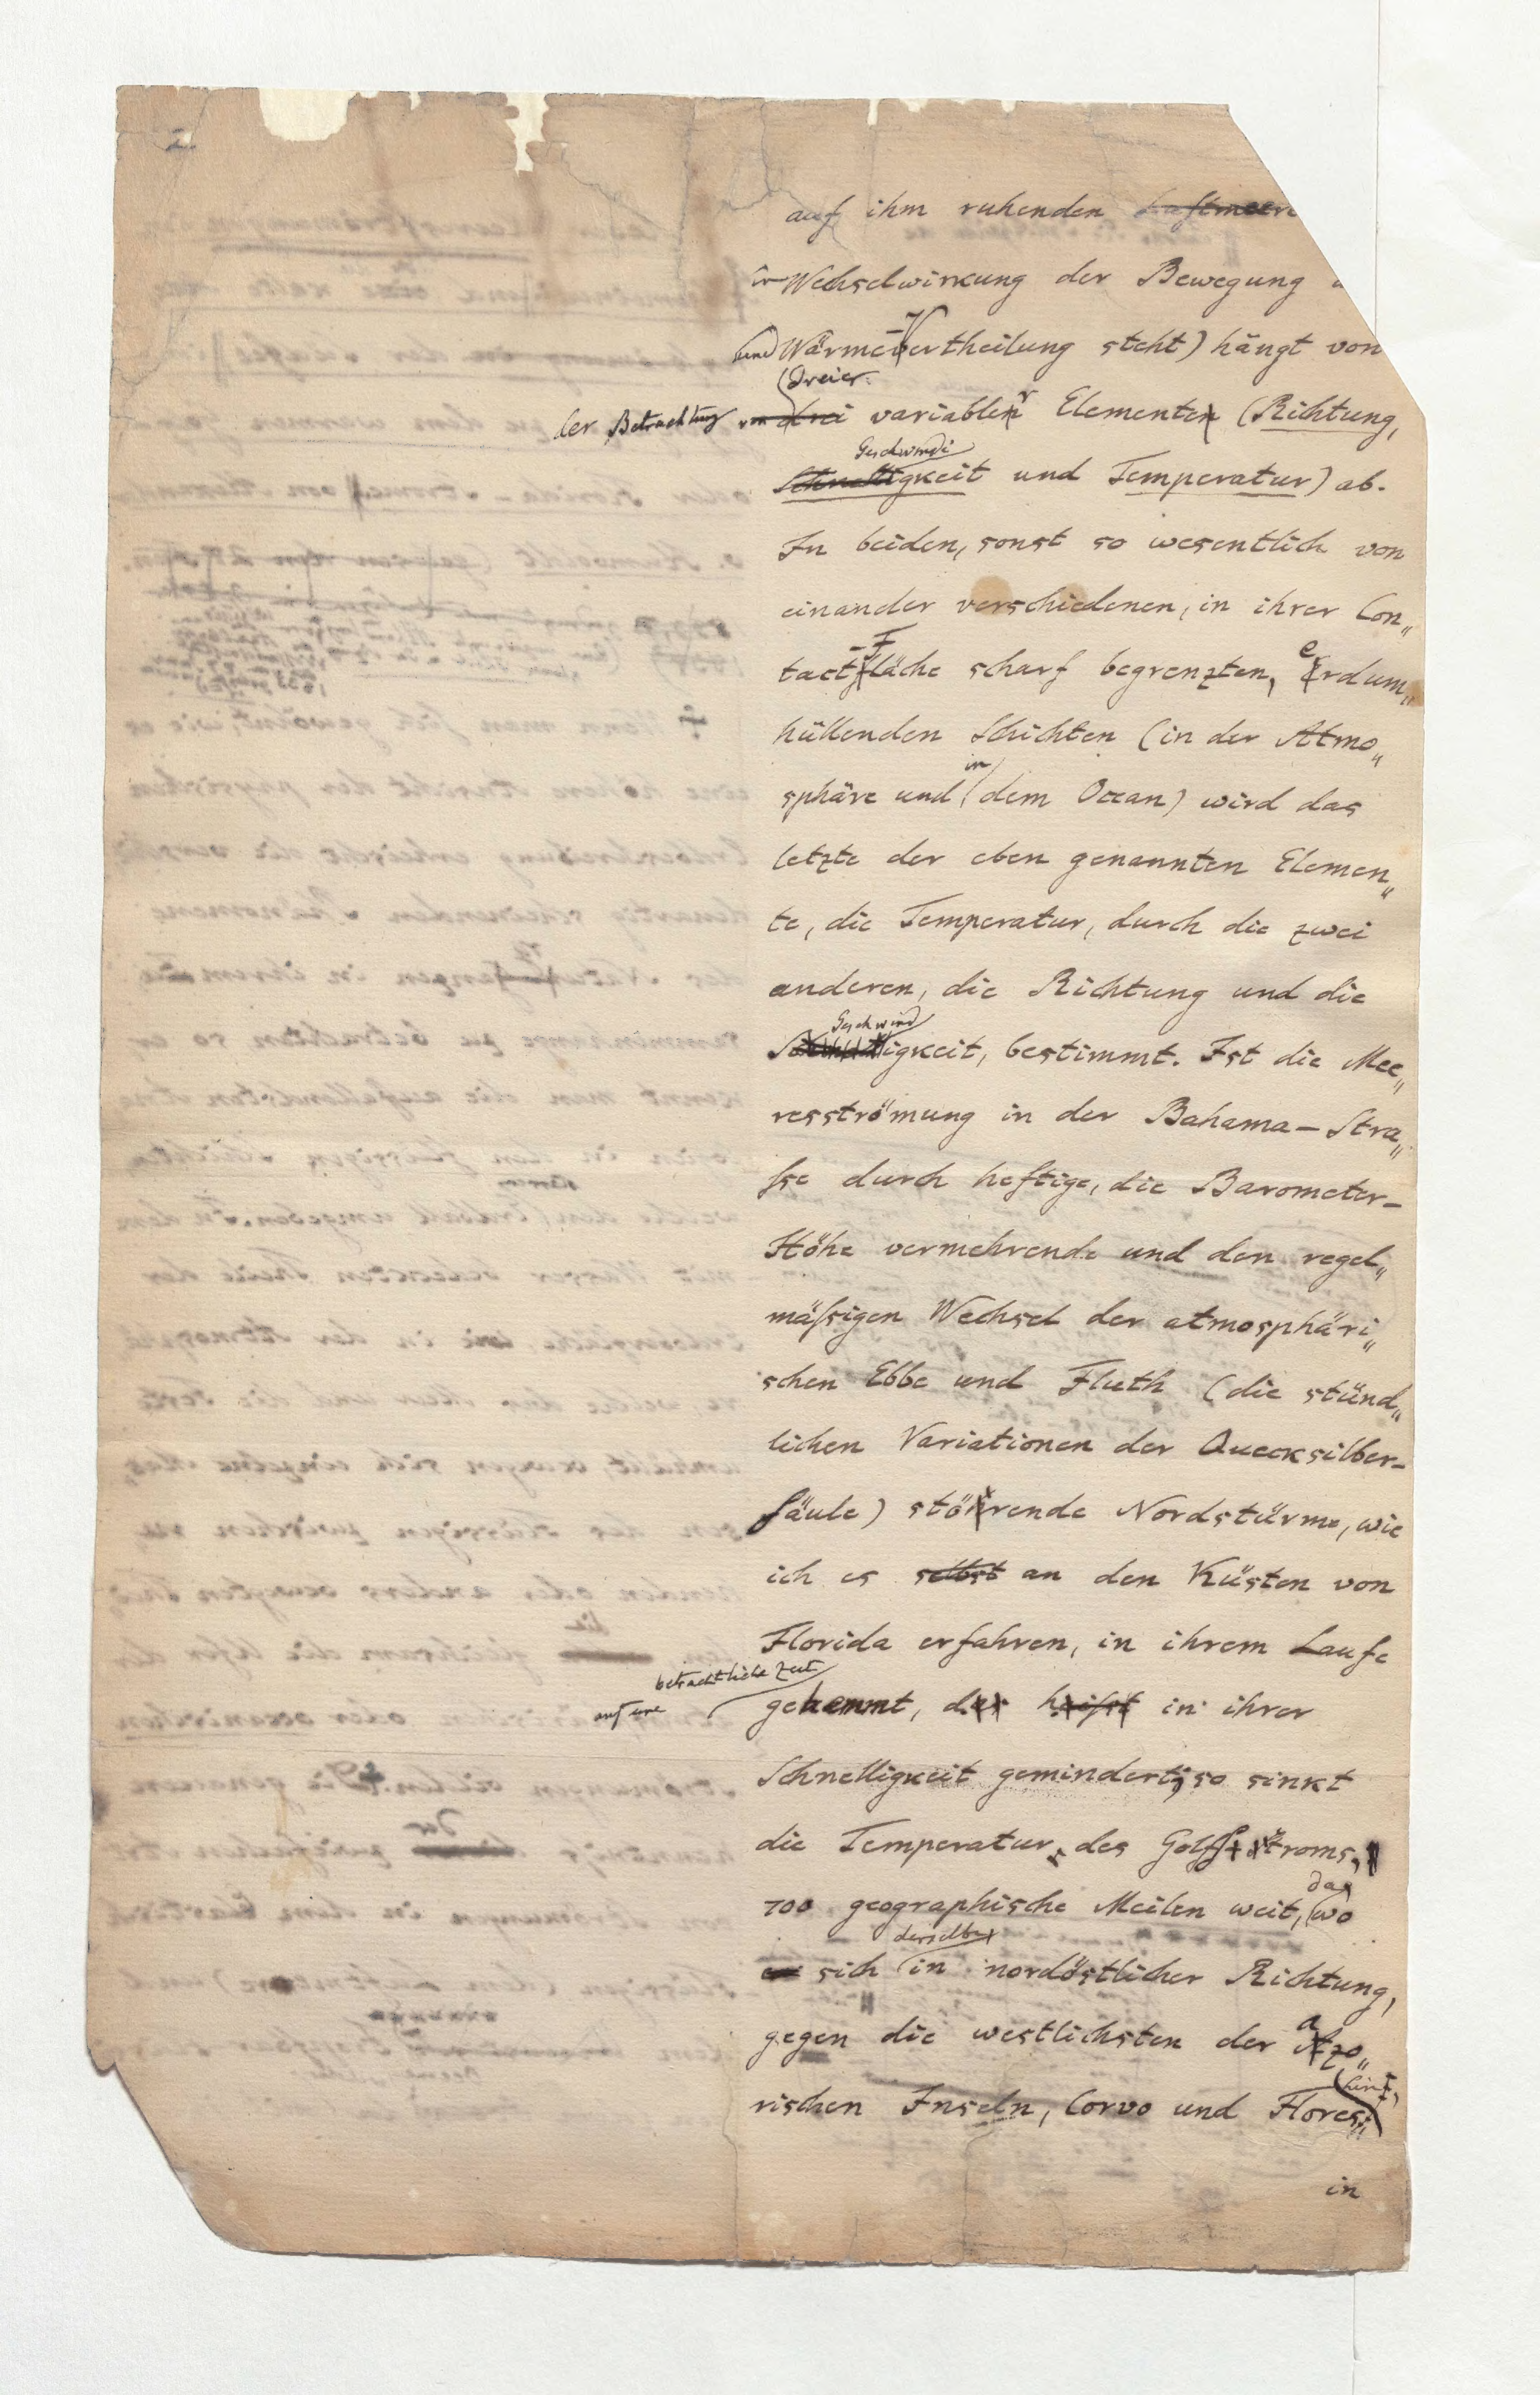 2.
auf ihm ruhenden Luftmeere
in Wechselwirkung der Bewegung
und Wärme-Vertheilung steht) hängt von
dreier
der Betrachtung von drei variabler Elemente (Richtung,
Geschwindi
Schnelligkeit und Temperatur) ab.
In beiden, sonst so wesentlich von
einander verschiedenen, in ihrer Con„
tact-Fläche scharf begrenzten, erdum„
hüllenden Schichten (in der Atmo„
in
sphäre und dem Ocean) wird das
letzte der eben genannten Elemen„
te, die Temperatur, durch die zwei
anderen, die Richtung und die
Geschwind
Schnelligkeit, bestimmt. Ist die Mee„
resströmung in der Bahama-Stra„
ſse durch heftige, die Barometer-
Höhe vermehrende und den regel„
mäſsigen Wechsel der atmosphäri„
schen Ebbe und Fluth (die stünd„
lichen Variationen der Quecksilber-
säule) störende Nordstürme, wie
ich es selbst an den Küsten von
Florida erfahren, in ihrem Laufe
auf eine beträchtliche Zeit
gehemmt, das heiſst in ihrer
Schnelligkeit gemindert; so sinkt
die Temperatur des Golfstroms,
da,
700 geographische Meilen weit, wo
derselbe
er sich in nordöstlicher Richtung,
gegen die westlichsten der azo„
hin,
rischen Inseln, Corvo und Flores,
in